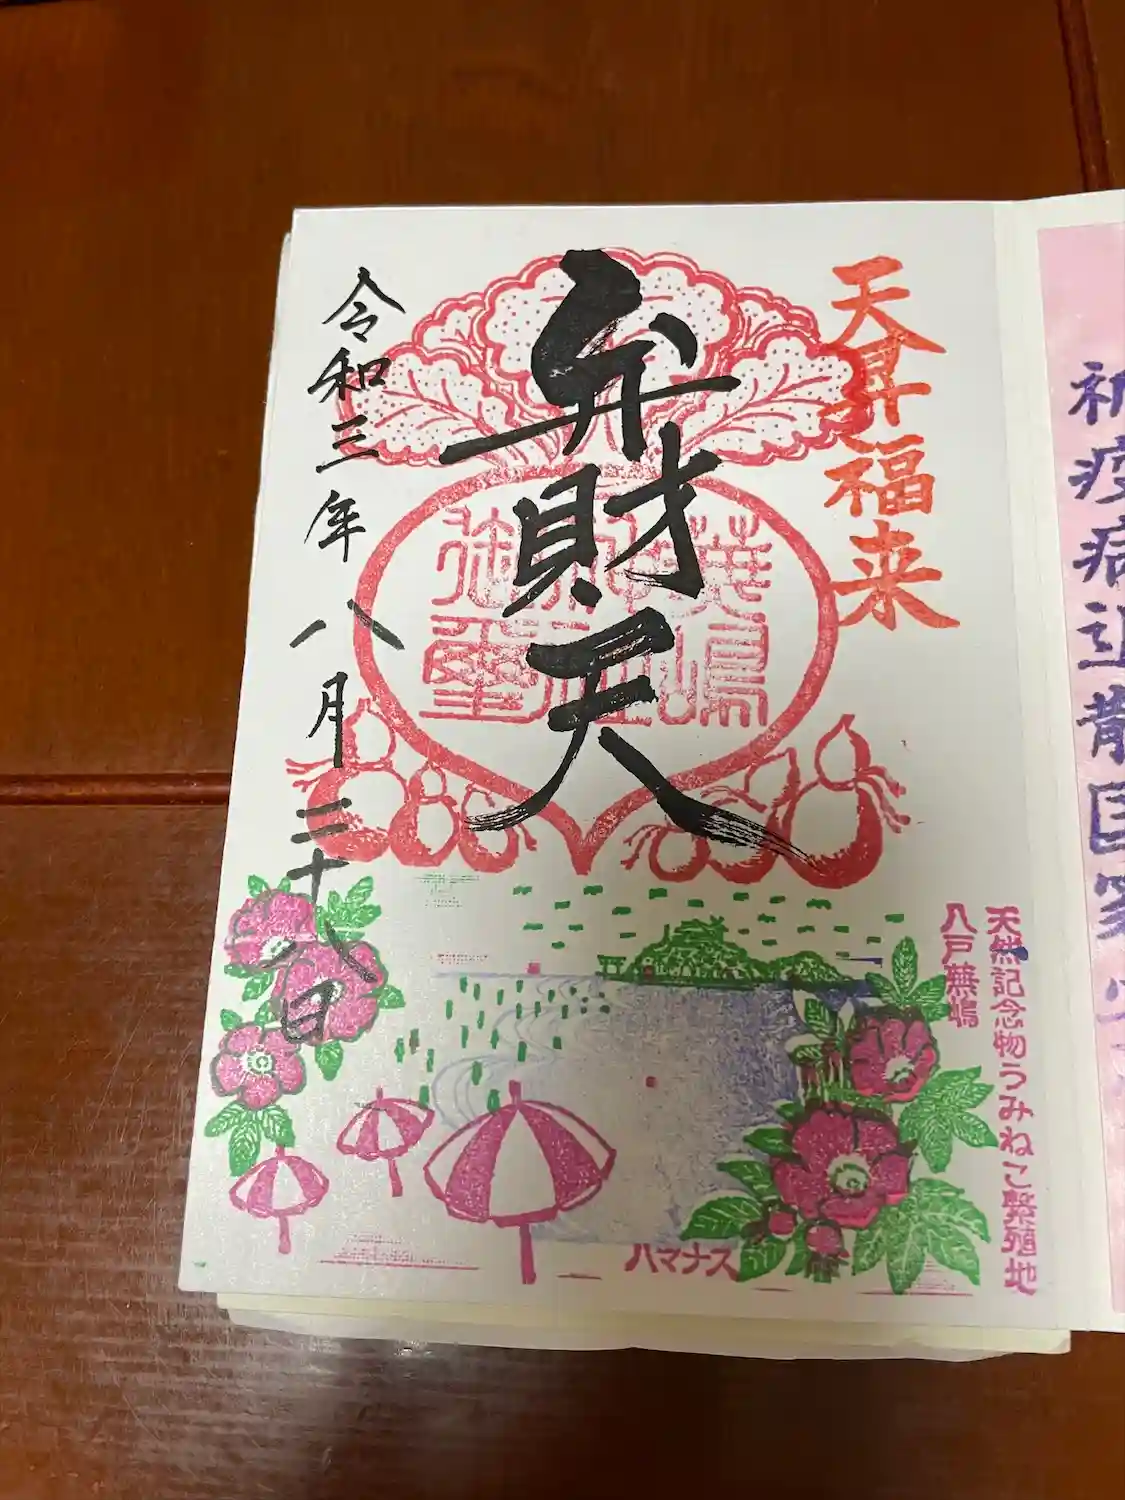 天昇福来
弁財天
令和三年八月二十八日
蕪嶋
神社
御璽
天然記念物うみねこ繁殖地
八戸蕪嶋
ハマナス
祈疫病退散国家